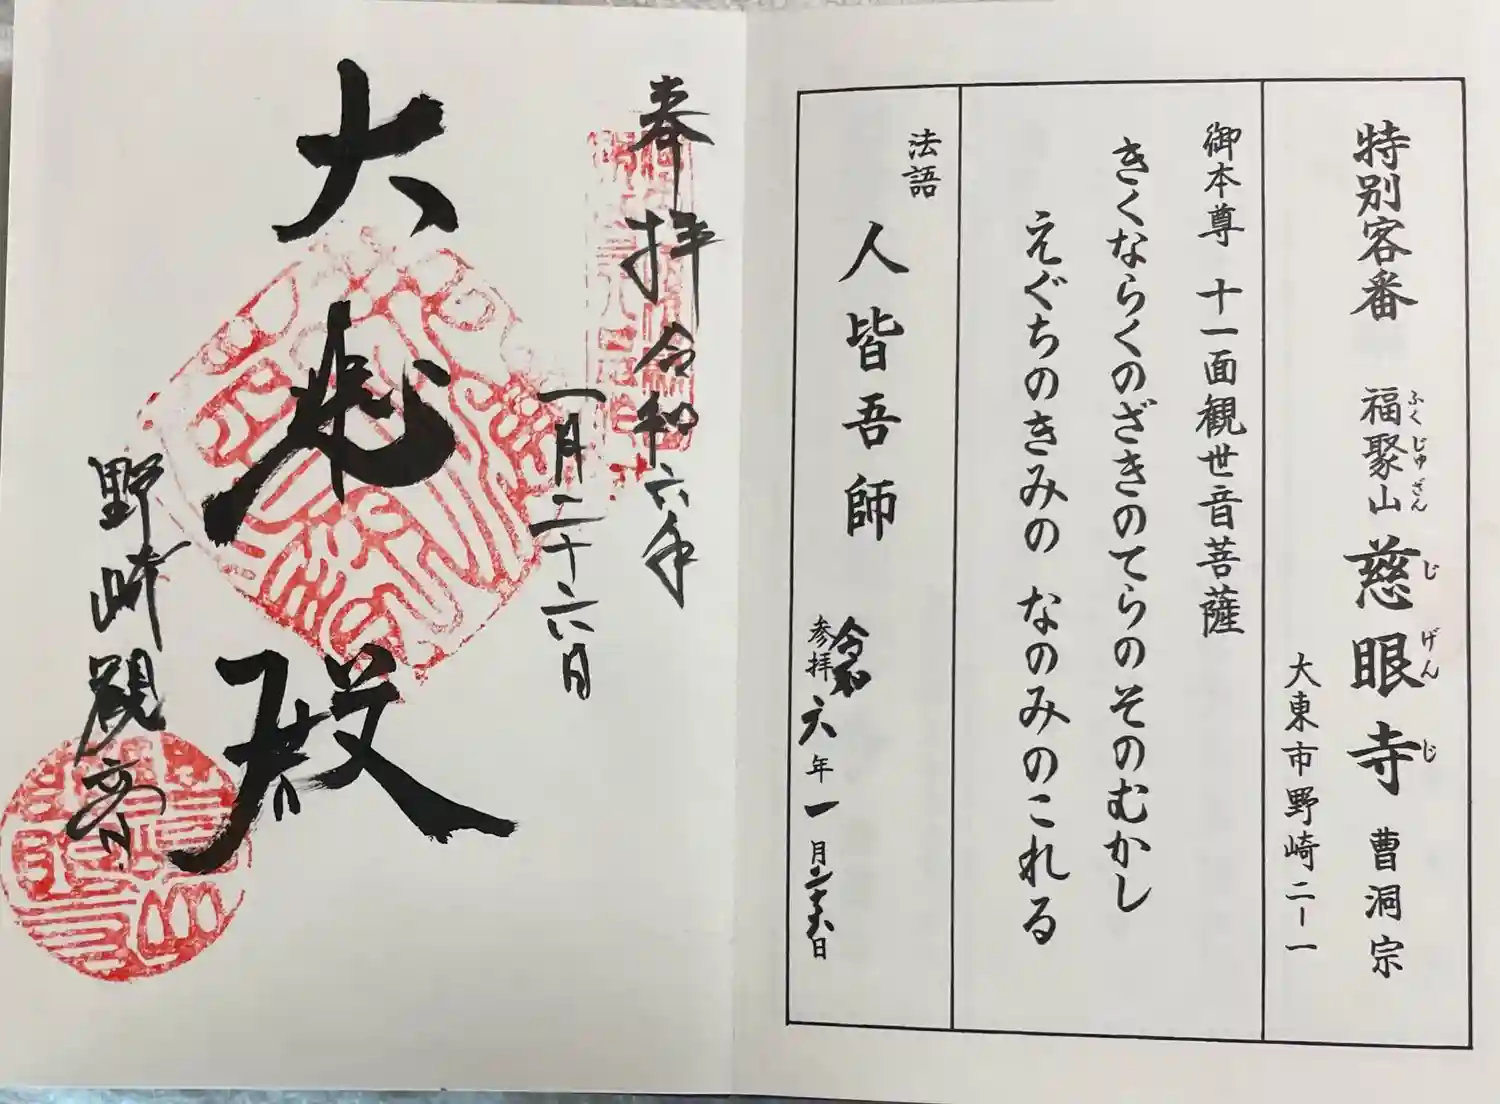 特別客番 福聚山 慈眼寺 曹洞宗
ふくじゅざん じげんじ
大東市野崎二ー一
御本尊 十一面観世音菩薩
きくならくのざきのてらのそのむかし
えぐちのきみの なのみのこれる
法語 人皆吾師
令和
参拝 六年 一月二十六日
奉拝 令和六年
一月二十六日
大悲殿
野崎観音